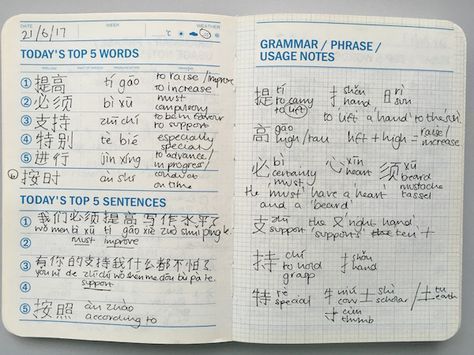 DATE 21/6/17 WEEK WEATHER
°C
TODAY'S TOP 5 WORDS
① 提高 tí gāo to raise / improve
to increase
② 必须 bì xū must
compulsory
③ 支持 zhī chí to be in favour
to support
④ 特别 tè bié especially
special
⑤ 进行 jìn xíng to advance/
in progress/
conduct
按时 àn shí on time
TODAY'S TOP 5 SENTENCES
① 我们必须提高写作水平了
wǒ men bì xū tí gāo xiě zuò shuǐ píng le
② must improve
③ 有你的支持我什么都不怕了
yǒu nǐ de zhī chí wǒ shén me dōu bù pà le
④ support
⑤ 按照 àn zhào
according to
GRAMMAR / PHRASE /
USAGE NOTES
提 tí to carry to lift 扌 shǒu hand 日 rì sun
to lift a hand to the
高 gāo high/tall lift + high = raise/
increase
必 bì certainly must 心 xīn heart 须 xū beard
mustache
He must have a heart tassel
and a 'beard'
支 zhī support the 又 right hand
'supports' the ten 十
持 chí to hold grasp 扌 shǒu hand
特 tè special 牛 niú cow 土 shì scholar / 土 tǔ earth
寸 cùn
thumb